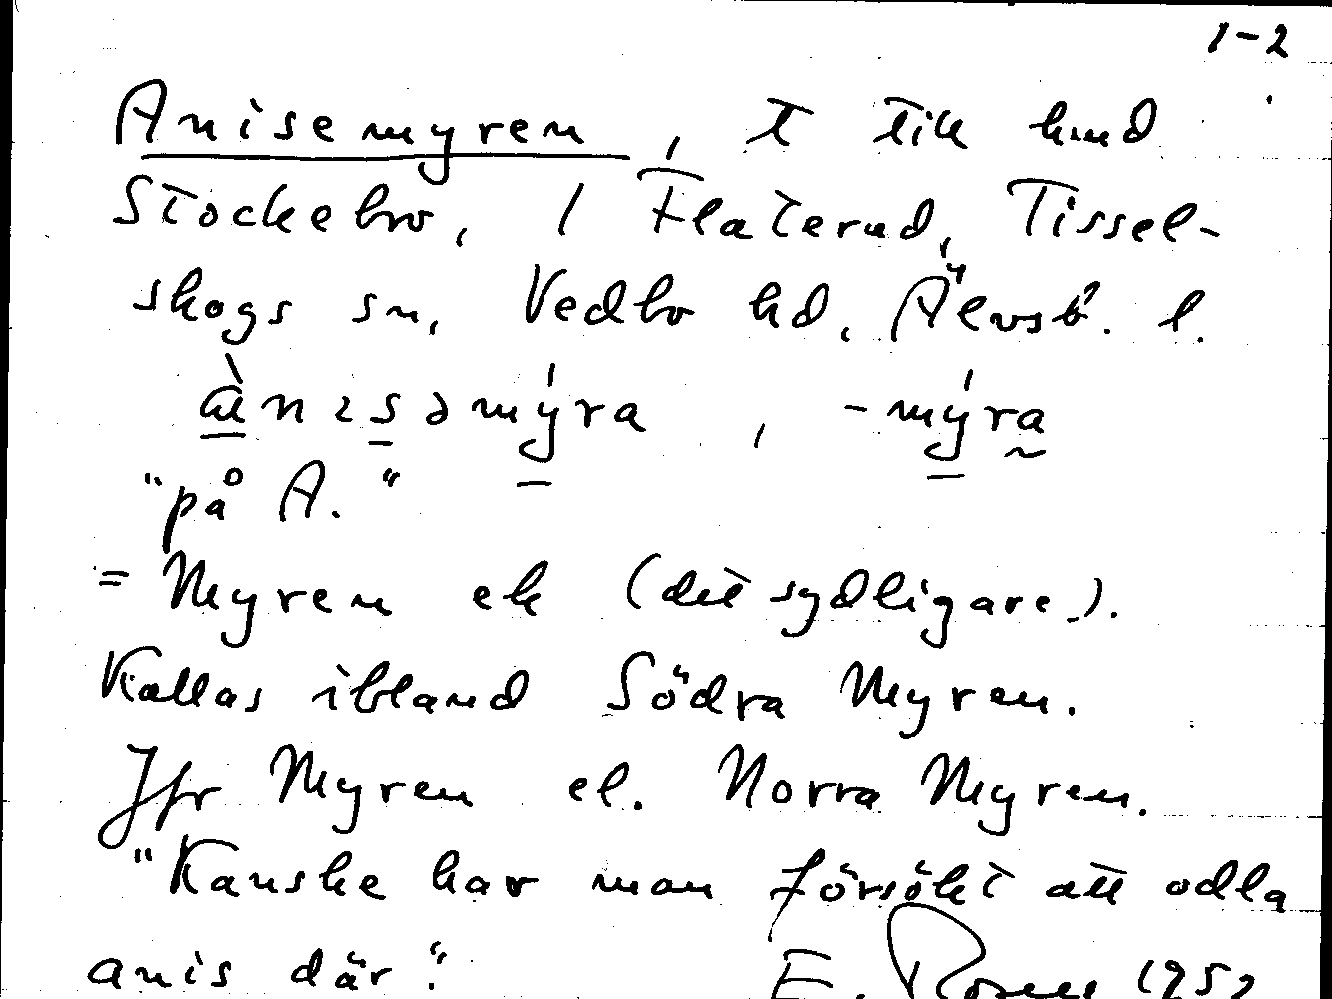 1-2
Anisemyren, t till hmd
Stockebo, 1 Flaterud, Tissel-
skogs sn, Vedbo hd, Älvsb. l.
"på A."
= Myren ek (det sydligare).
Kallas ibland Södra Myren.
Jfr Myren el. Norra Myren.
"Kanske har man försökt att odla
anis där."
E. Rosell 1952